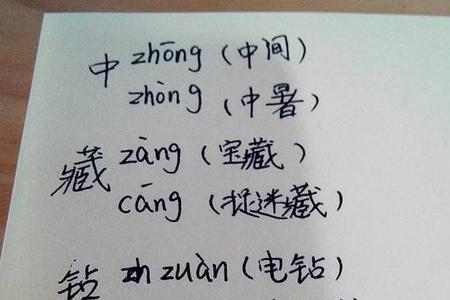 中 zhōng（中间）
zhòng（中暑）
藏 zàng（宝藏）
cāng（捉迷藏）
钻 zuàn（电钻）